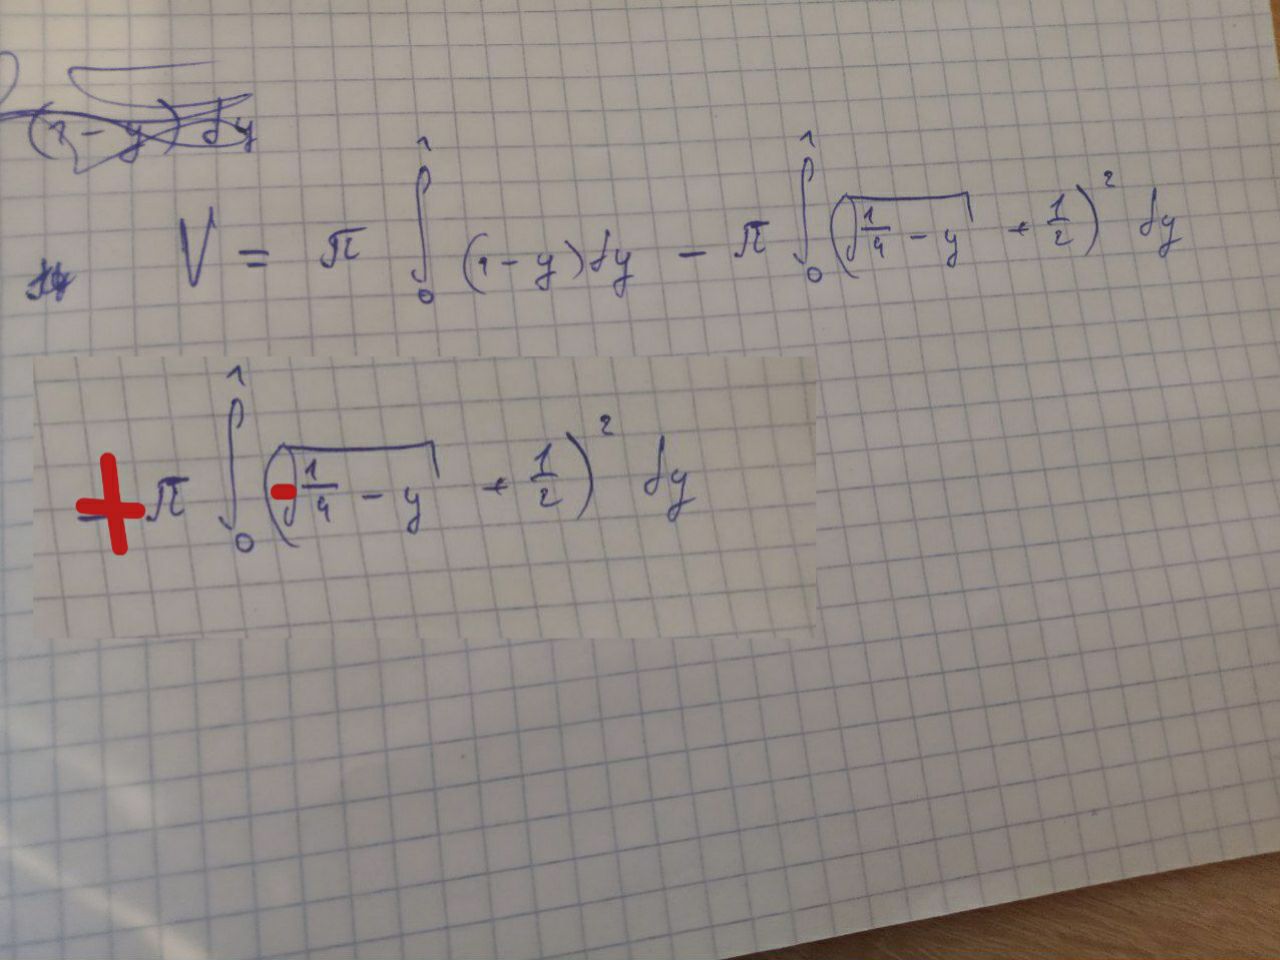 (1 - y) dy
V = π ∫₀¹ (1 - y) dy - π ∫₀¹ (√(1/4 - y) + 1/2)² dy
+ π ∫₀¹ (-√(1/4 - y) + 1/2)² dy